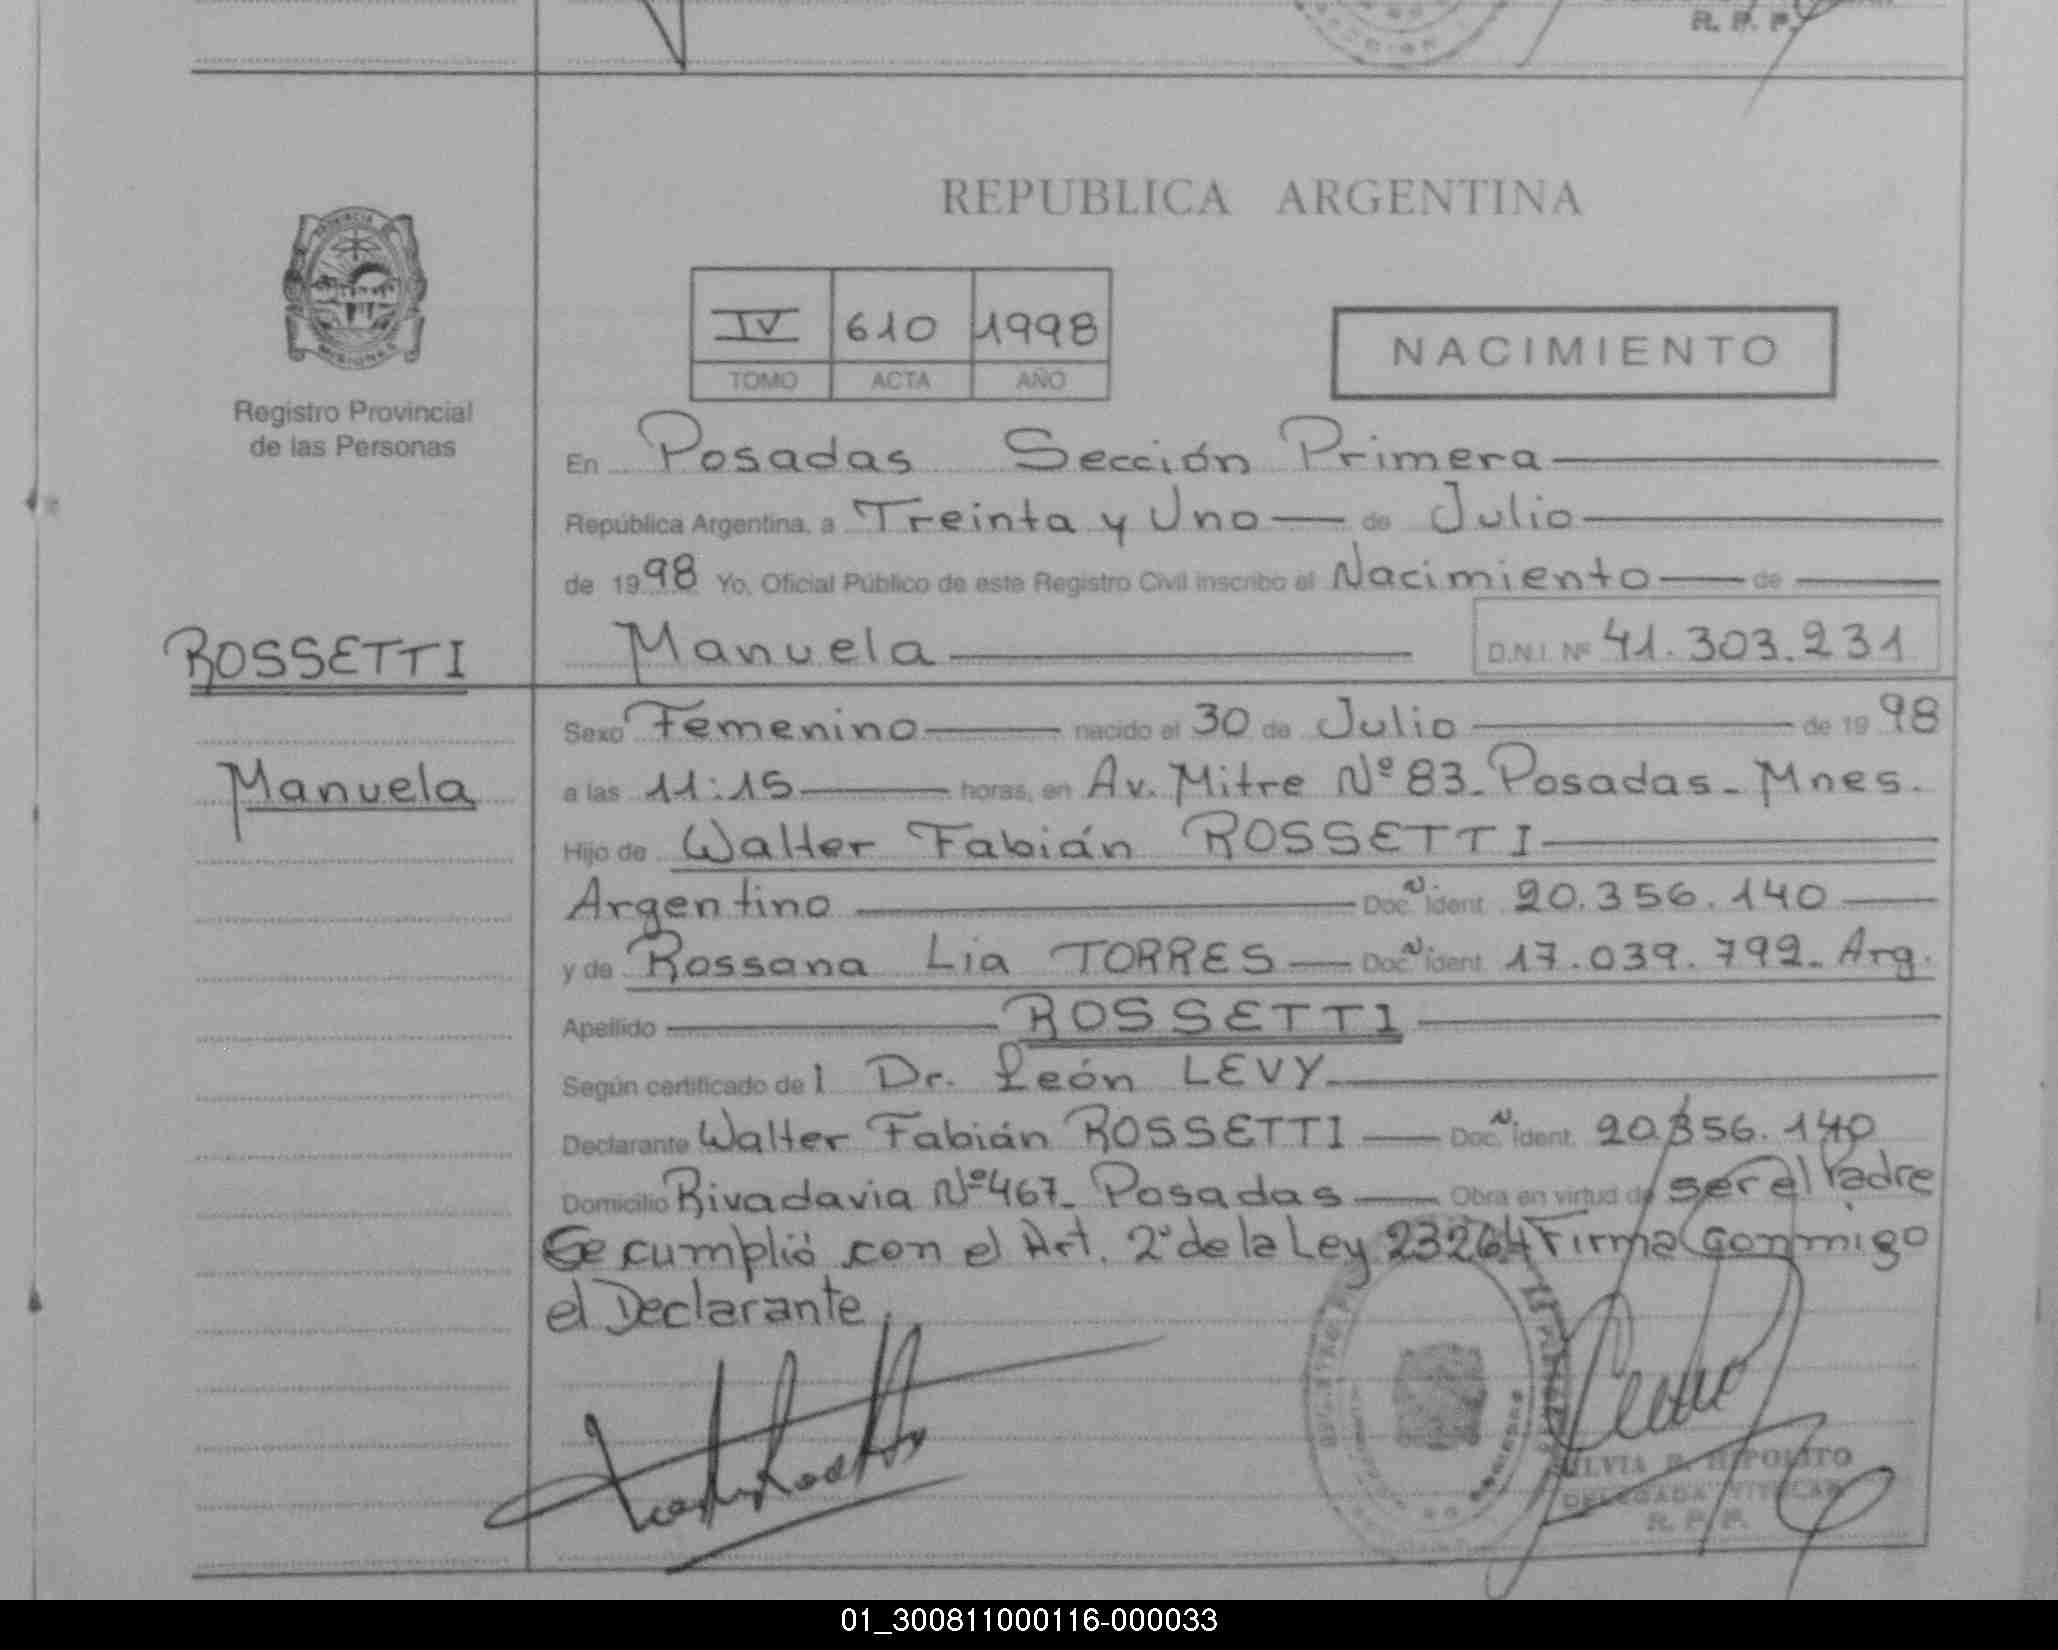 R. P. P.
REPUBLICA ARGENTINA
PROVINCIA
MISIONES
Registro Provincial
de las Personas
IV 610 1998
TOMO ACTA AÑO
NACIMIENTO
En Posadas Sección Primera
República Argentina, a Treinta y Uno de Julio
de 1998 Yo, Oficial Público de este Registro Civil inscribo el Nacimiento de
Manuela D.N.I. Nº 41.303.231
ROSSETTI
Manuela
Sexo Femenino nacido el 30 de Julio de 1998
a las 11:15 horas, en Av. Mitre Nº 83_ Posadas_ Mnes.
Hijo de Walter Fabián ROSSETTI
Argentino Doc. Ident. 20.356.140
y de Rossana Lia TORRES Doc. Ident. 17.039.792_ Arg.
Apellido ROSSETTI
Según certificado del Dr. León LEVY
Declarante Walter Fabián ROSSETTI Doc. Ident. 20.356.140
Domicilio Rivadavia Nº 467_ Posadas Obra en virtud de ser el Padre
Se cumplió con el Art. 2º de la Ley 23264 Firma Conmigo
el Declarante.
SILVIA R. HIPOLITO
DELEGADA TITULAR
R. P. P.
01_300811000116-000033